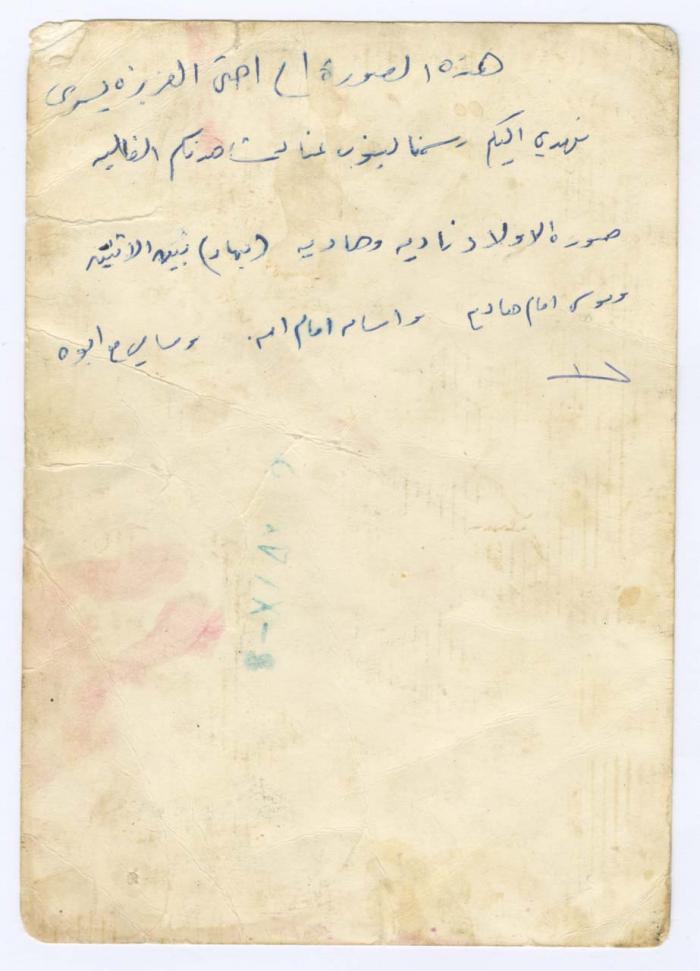 هذه الصورة الى اختي العزيزة يسرى
نهدي اليكم رسمنا لينوب عنا لمشاهدتكم الغاليه
صورة الاولاد ناديه وهاديه (نهاد) بين الاثنين
وموسى امام هاديه واسامه امام امه وسامي مع ابوه